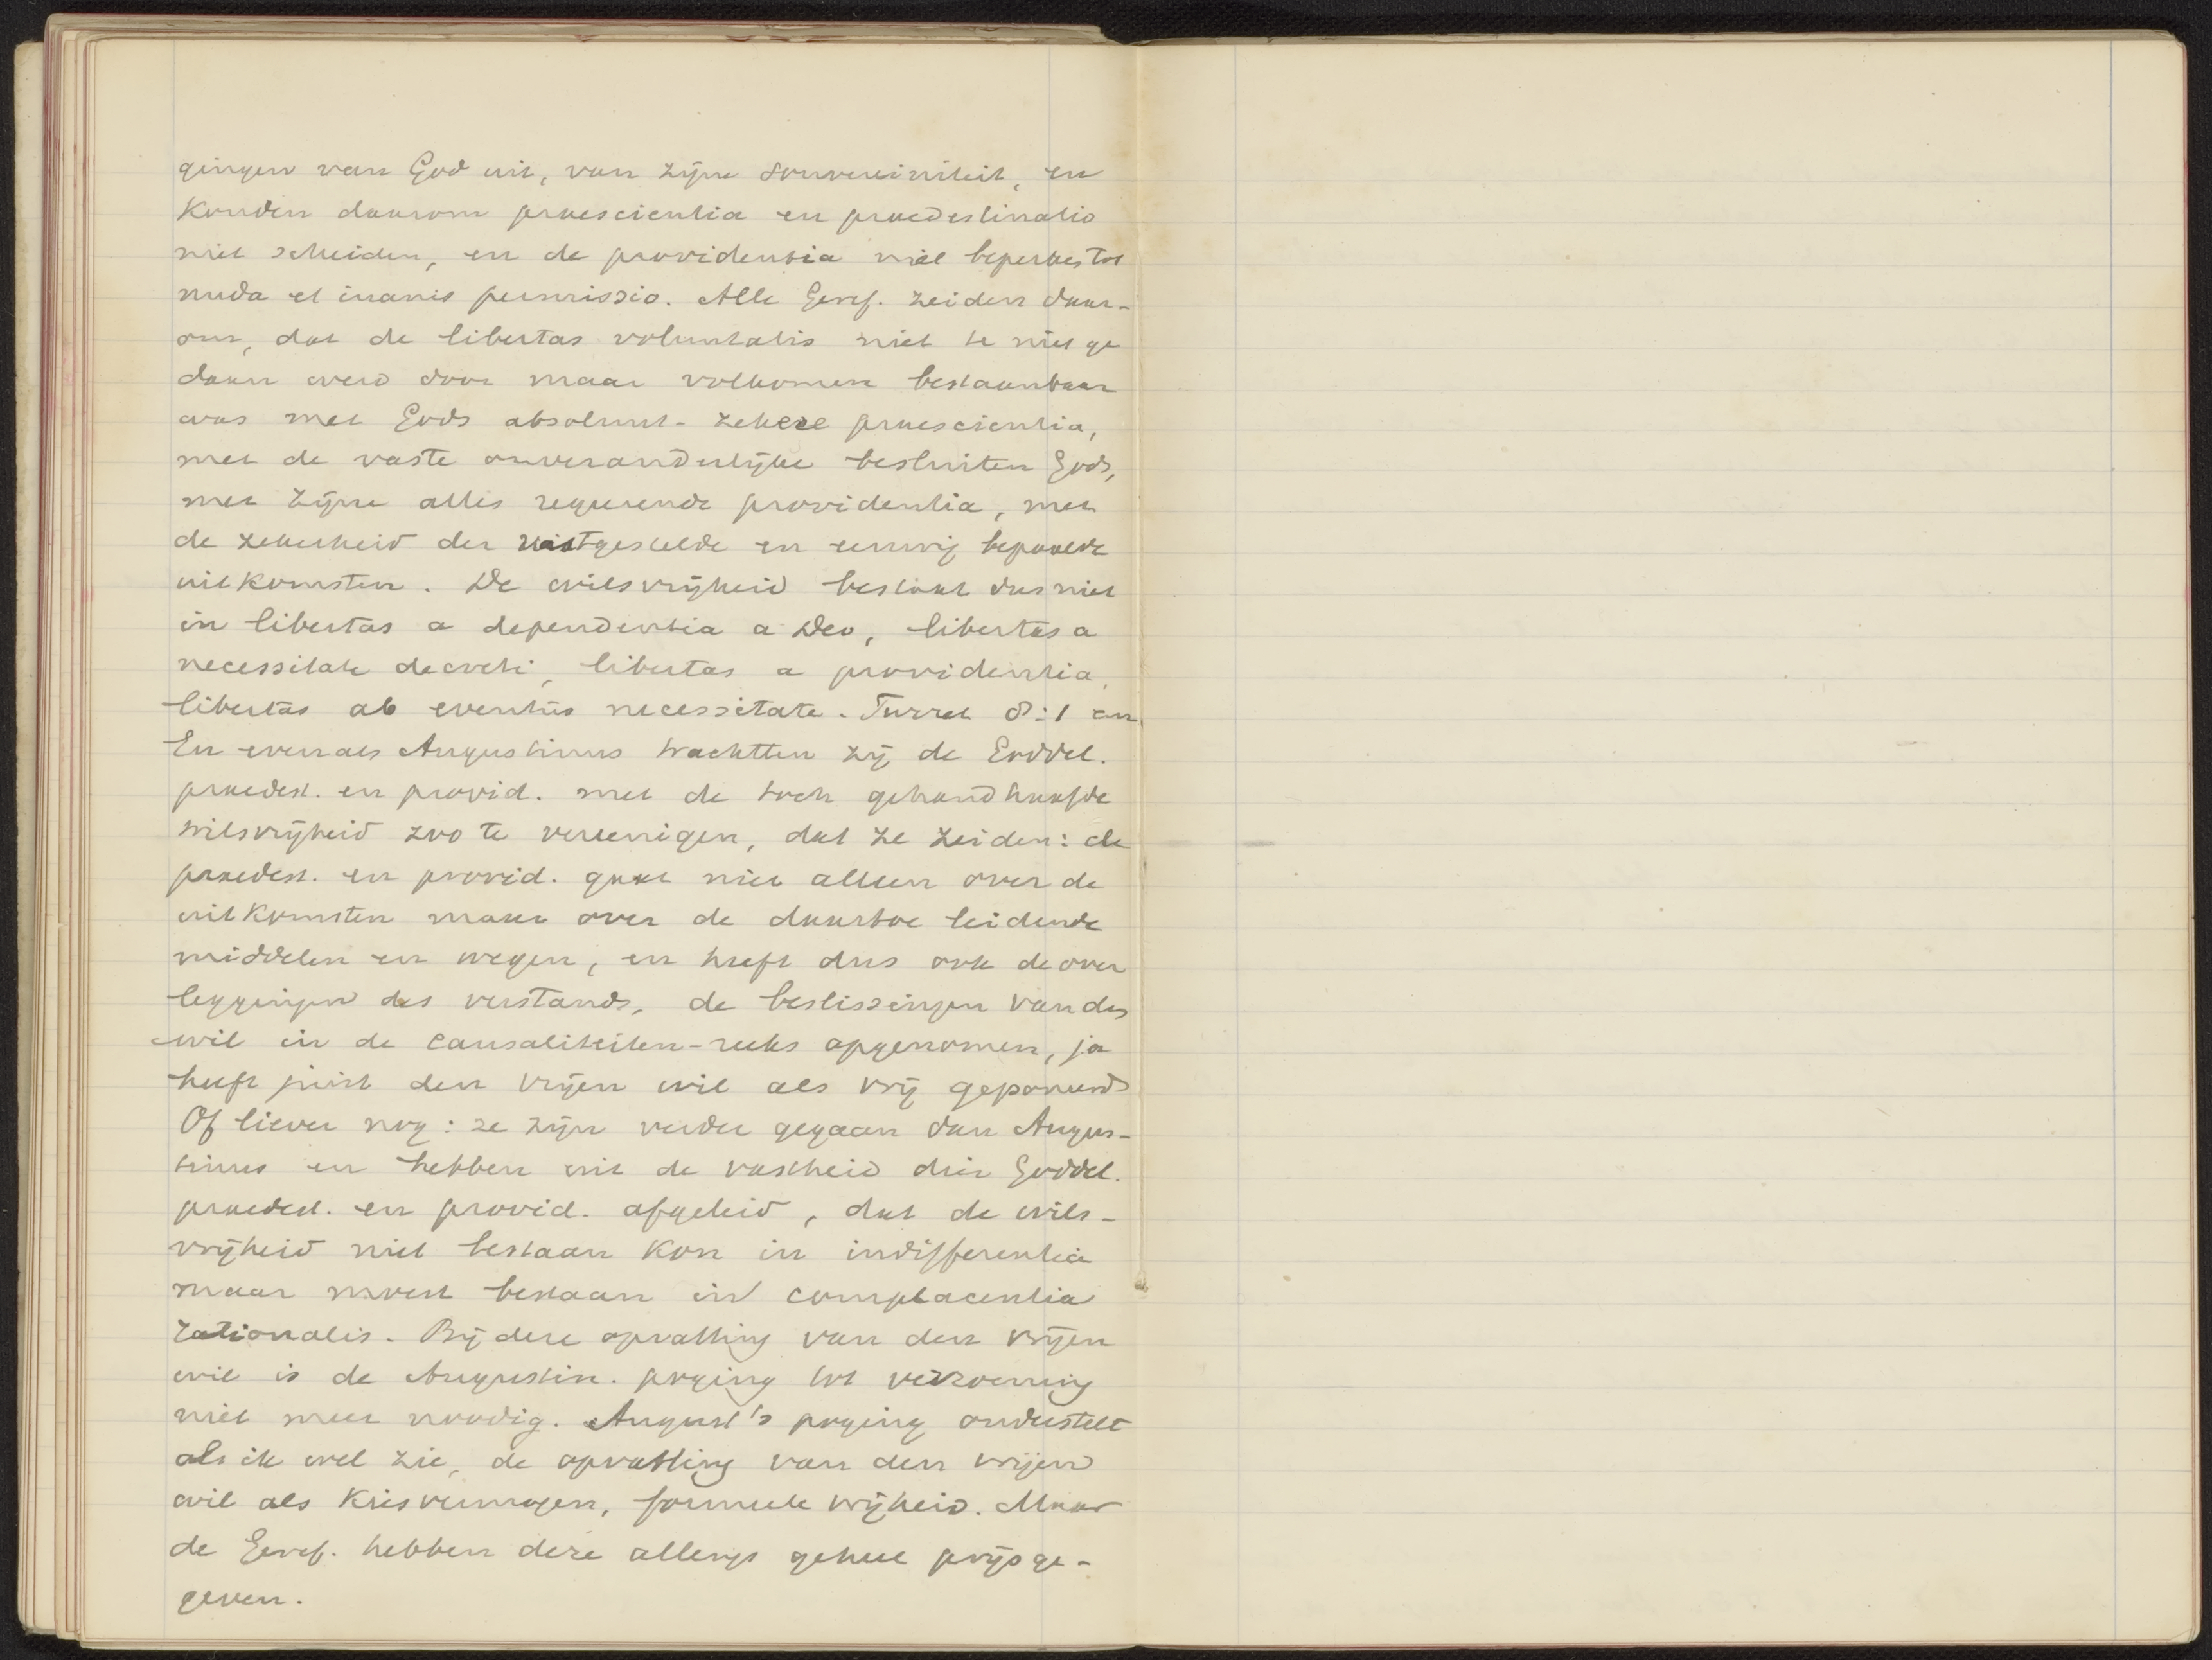 gingen van God uit, van zijne souvereiniteit, en
konden daarom praescientia en praedestinatio
niet scheiden, en de providentia niet beperken tot
nuda et inanis permissio. Alle Geref. zeiden daar-
om, dat de libertas voluntatis niet te niet ge
daan werd door maar volkomen bestaanbaar
was met Gods absoluut-zekere praescientia,
met de vaste onveranderlijke besluiten Gods,
met zijne alles regeerende providentia, met
de zekerheid der vastgestelde en eeuwig bepaalde
uitkomsten. De wilsvrijheid bestaat dus niet
in libertas a dependentia a Deo, libertas a
necessitate decreti, libertas a providentia,
libertas ab eventus necessitate. Turret 8:1
En evenals Augustinus trachtten zij de Goddel.
praedest. en provid. met de toch gehandhaafde
wilsvrijheid zoo te vereenigen, dat ze zeiden: de
praedest. en provid. gaat niet alleen over de
uitkomsten maar over de daartoe leidende
middelen en wegen, en heeft dus ook de over
leggingen des verstands, de beslissingen van des
wil in de causaliteiten-reeks opgenomen, ja
heeft juist den vrijen wil als vrij geponeerd
Of liever nog: ze zijn verder gegaan dan Augus-
tinus en hebben uit de vastheid dier Goddel.
praedest. en provid. afgeleid, dat de wils-
vrijheid niet bestaan kon in indifferentia
maar moest bestaan in complacentia
rationalis. Bij deze opvatting van den vrijen
wil is de Augustin. poging tot verzoening
niet meer noodig. August's poging onderstelt
als ik wel zie, de opvatting van den vrijen
wil als kiesvermogen, formeele vrijheid. Maar
de Geref. hebben deze allengs geheel prijsge-
geven.